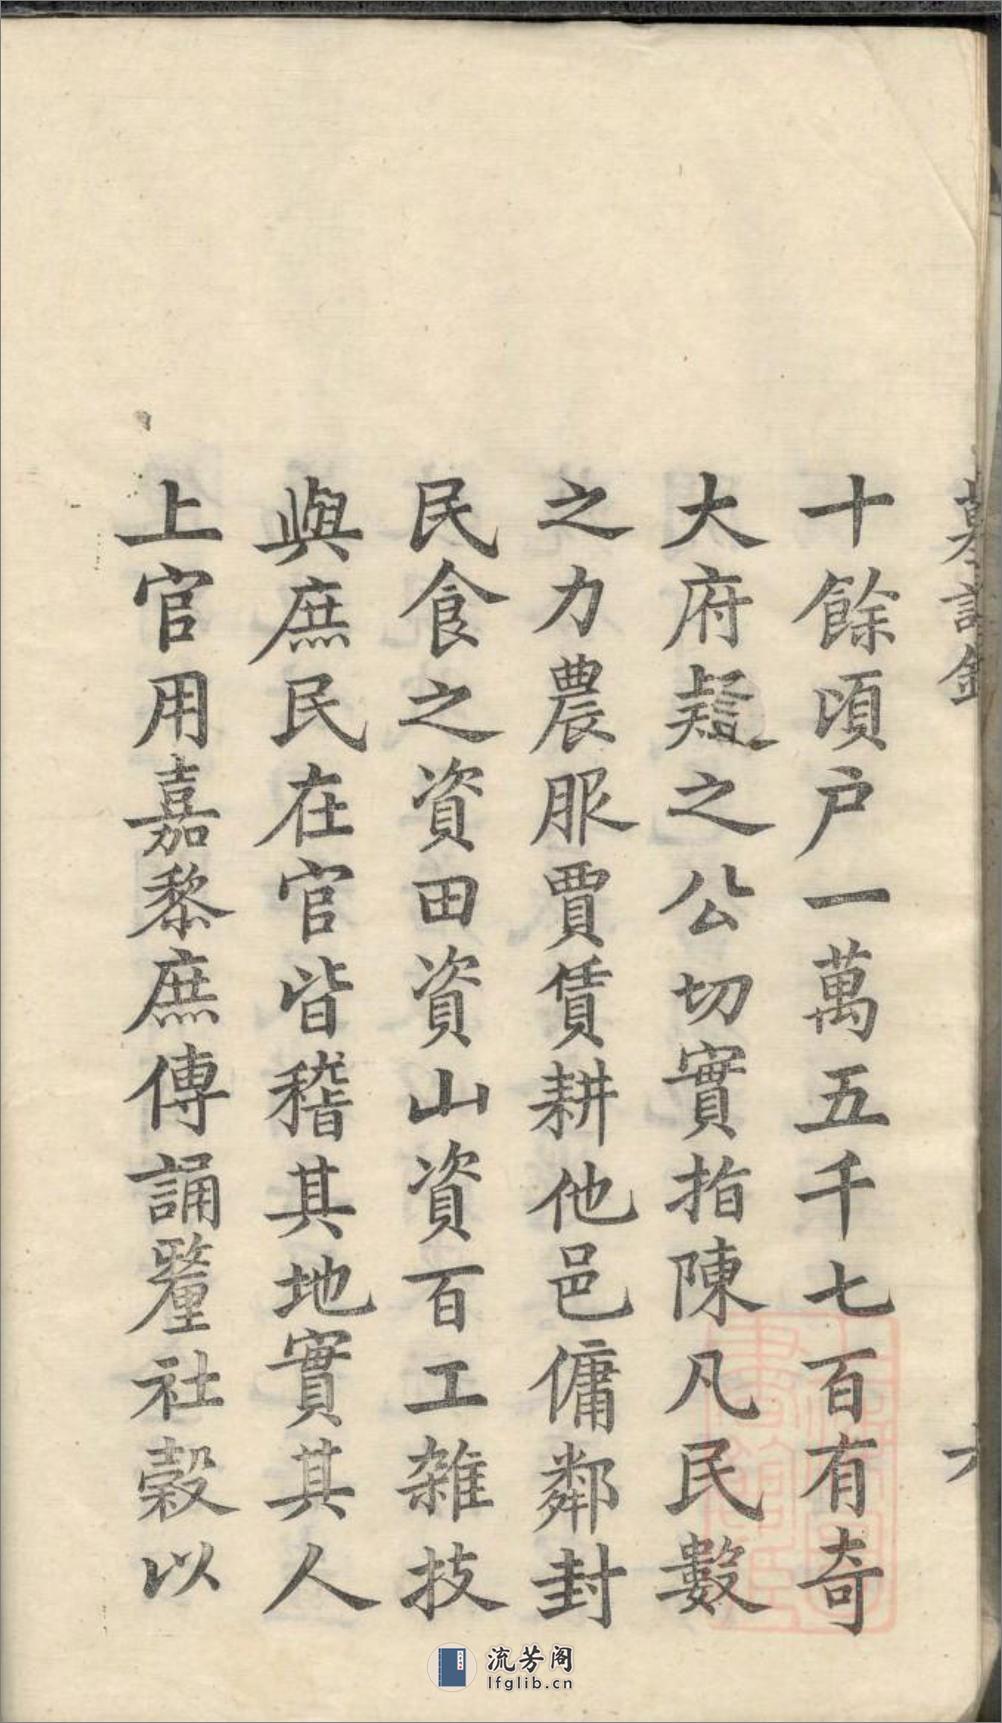 墓誌銘
六
十餘頃戶一萬五千七百有奇
大府疑之公切實指陳凡民數
之力農服賈賃耕他邑傭鄰封
民食之資田資山資百工雜技
與庶民在官皆稽其地實其人
上官用嘉黎庶傳誦釐社穀以
流芳阁
lfglib.cn